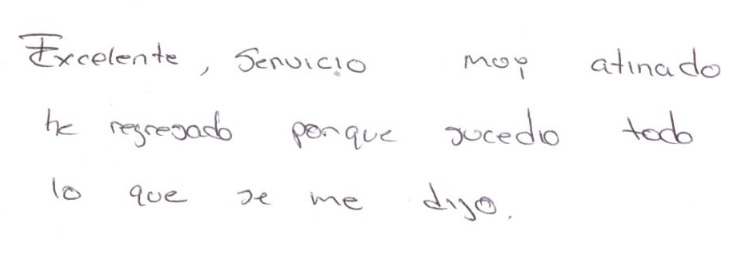 Excelente, Servicio muy atinado
he regresado porque sucedio todo
lo que se me dijo.